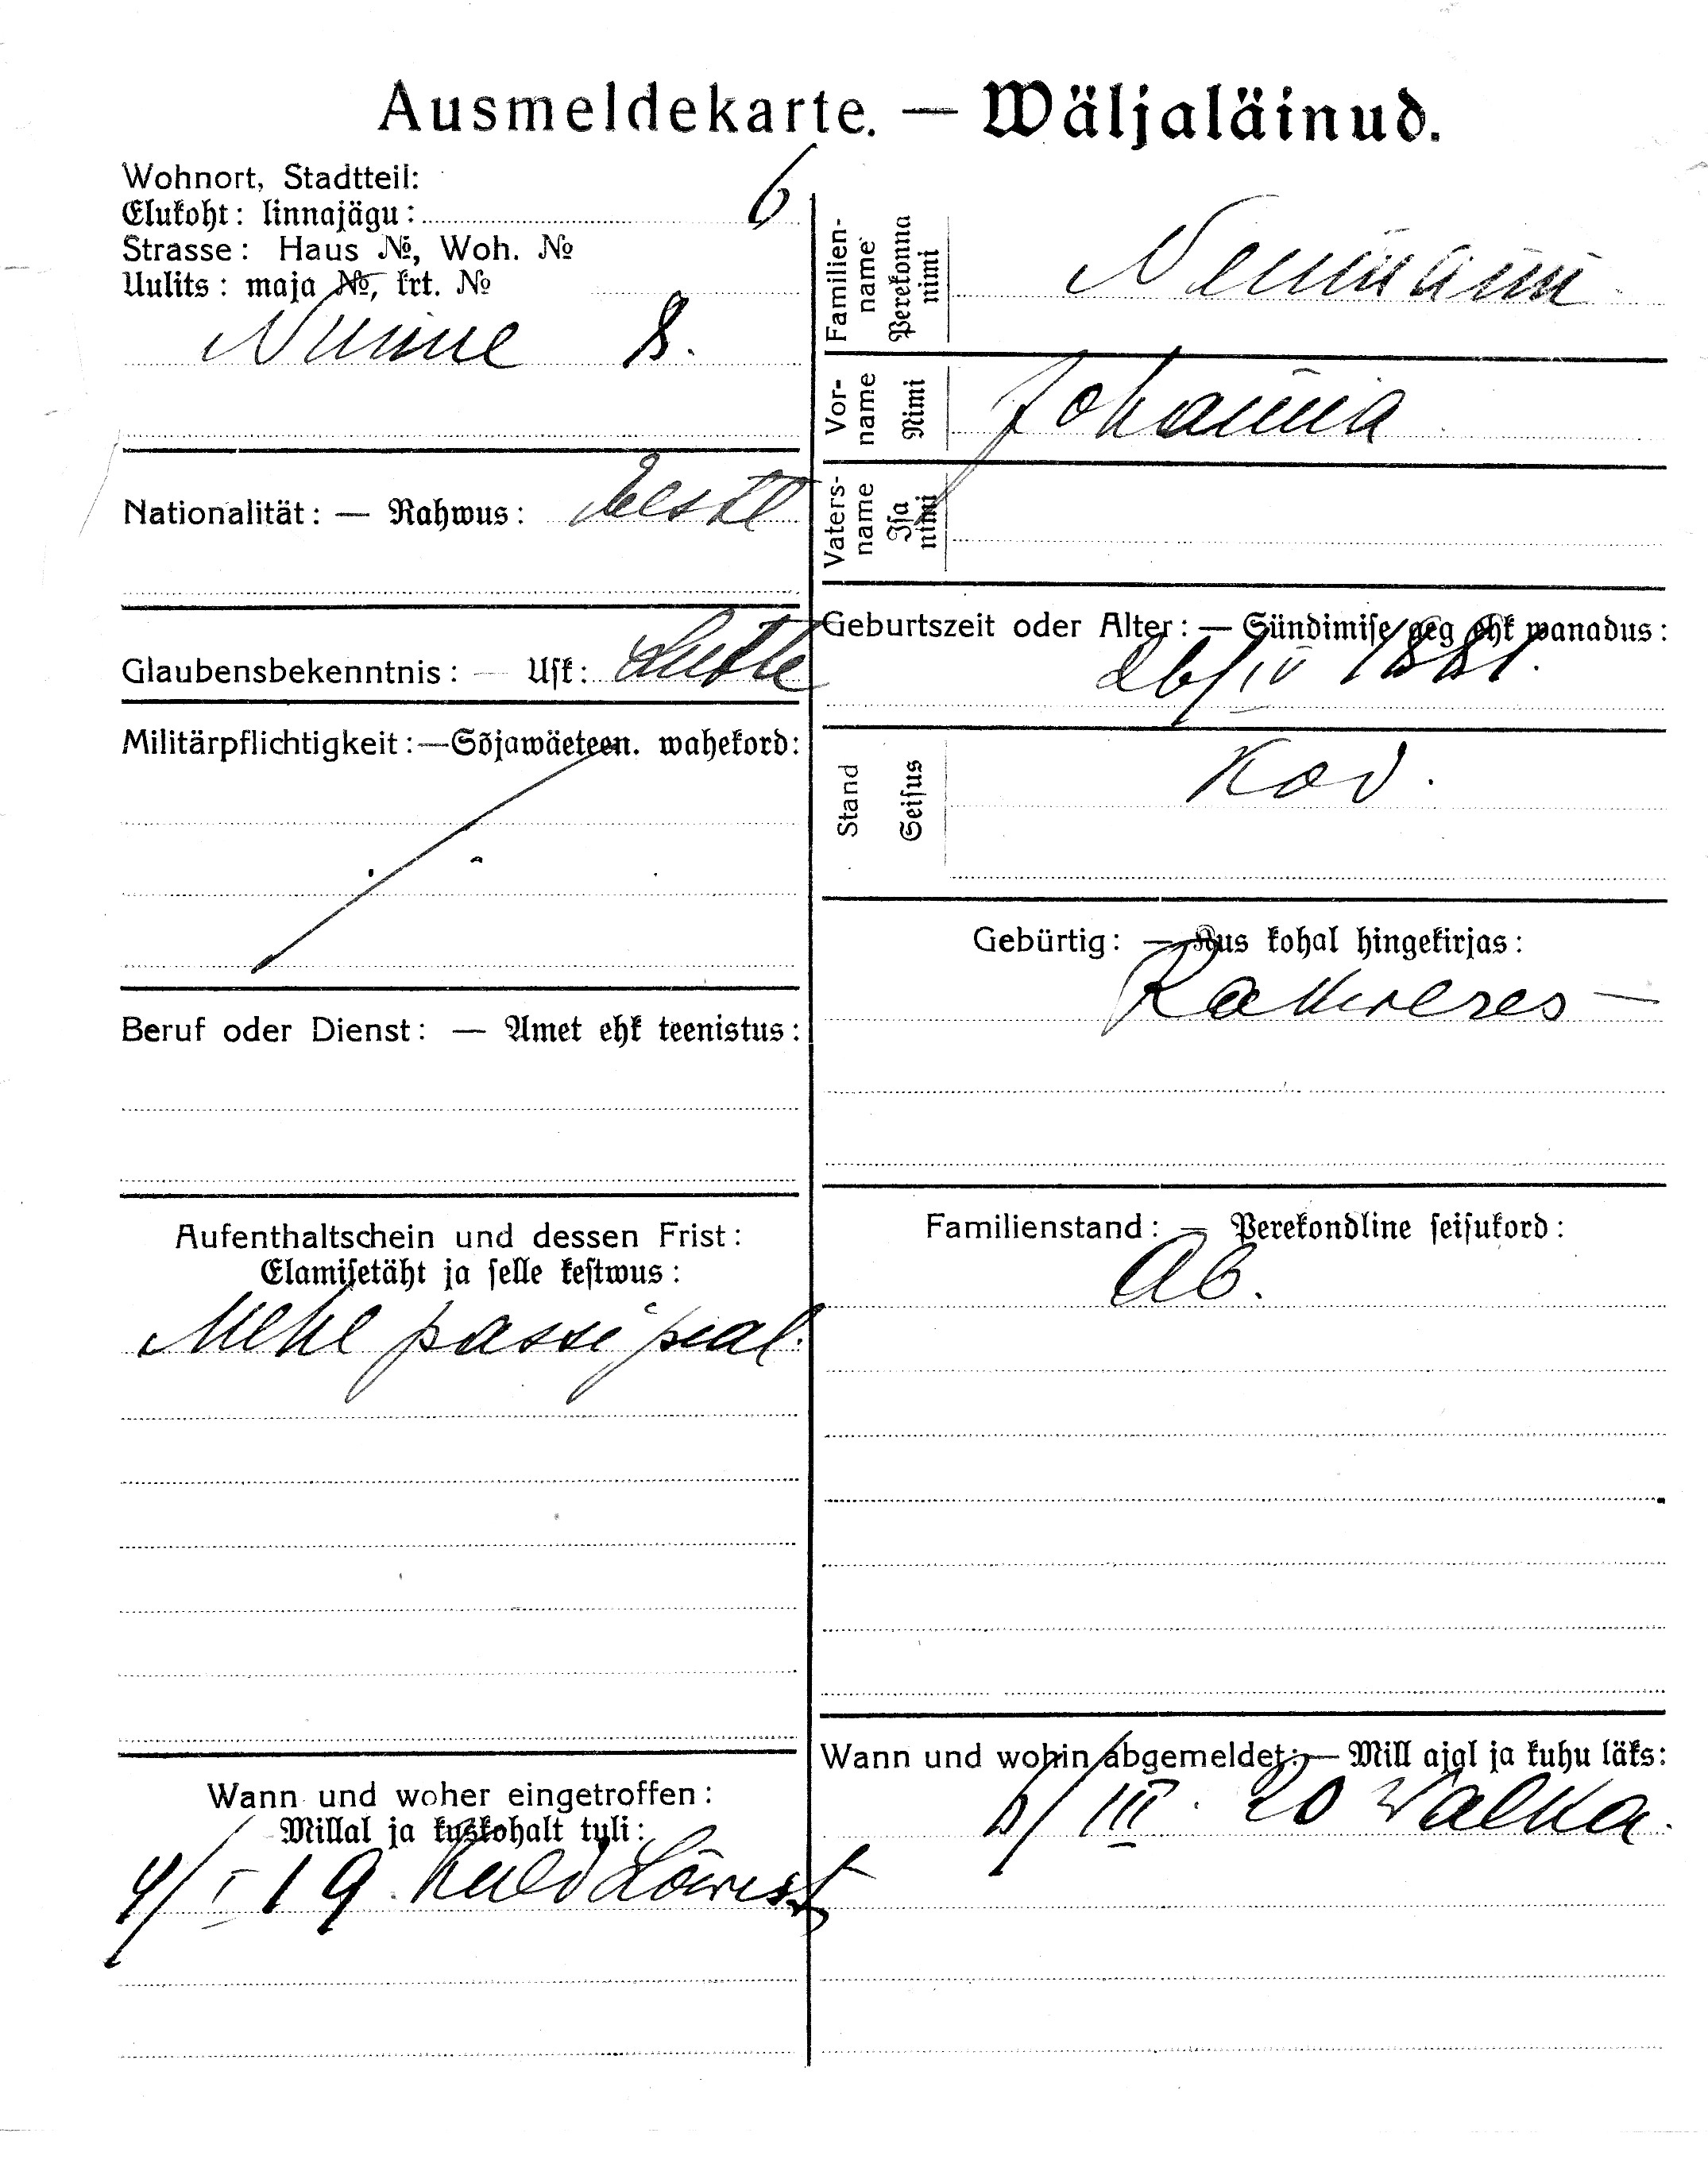 Ausmeldekarte. — Wäljaläinud.
Wohnort, Stadtteil:
Elukoht: linnajägu: 6
Strasse: Haus №, Woh. №
Uulits: maja №, krt. №
Nunne 8.
Nationalität: — Rahwus: Eestl
Glaubensbekenntnis: — Usk: Luthe
Militärpflichtigkeit: — Sõjawäeteen. wahekord:
Beruf oder Dienst: — Amet ehk teenistus:
Aufenthaltschein und dessen Frist:
Elamisetäht ja selle kestwus:
Mehe passi peal.
Wann und woher eingetroffen:
Millal ja kuskohalt tuli:
4/I 19. Kuld Lõwist
Familien-
name
Perekonna
nimi
Neumann
Vor-
name
Nimi
Johanna
Vaters-
name
Isa
nimi
Geburtszeit oder Alter: — Sündimise aeg ehk wanadus:
26/IV 1881.
Stand
Seisus
Kod.
Gebürtig: — Kus kohal hingekirjas:
Rakweres —
Familienstand: — Perekondline seisukord:
Ab.
Wann und wohin abgemeldet: — Mill ajal ja kuhu läks:
/III. 20 Walka.